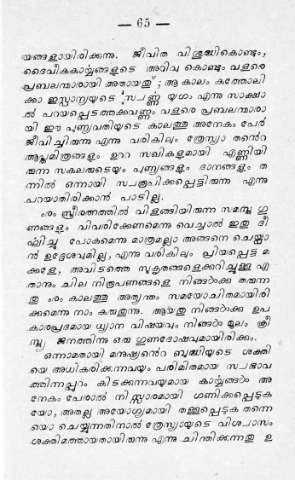 — 65 —
യങ്ങളായിരിക്കുന്നു. ജീവിത വിശുദ്ധികൊണ്ടും,
ദൈവീകകാൎയ്യങ്ങളുടെ അറിവു കൊണ്ടും വളരെ
പ്രബലന്മാരായി അതായതു്; ആ കാലം കത്തോലി
ക്കാ ഇസ്പാന്യയുടെ 'സ്വൎണ്ണ യുഗം എന്നു സാക്ഷാ
ൽ പറയപ്പെടത്തക്കവണ്ണം വളരെ പ്രബലന്മാരാ
യി ഈ പുണ്യവതിയുടെ കാലത്തു അനേകം പേർ
ജീവിച്ചിരുന്നു എന്നു വരികിലും ത്രേസ്യാ തൻെറ
ആത്മമിത്രങ്ങളും ഉററ സഖികളുമായി എണ്ണിയി
രുന്ന സകലരുടെയും പുണ്യങ്ങളും ദാനങ്ങളും ത
ന്നിൽ ഒന്നായി സ്വരൂപിക്കപ്പെട്ടിരുന്നു എന്നു
പറയാതിരിക്കാൻ പാടില്ല.
ൟ സ്ത്രീരത്നത്തിൽ വിളങ്ങിയിരുന്ന സമസ്ത ഗു
ണങ്ങളും വിവരിക്കേണമെന്നു വെച്ചാൽ ഇതു ദീ
ൎഘിച്ചു പോകുമെന്നു മാത്രമല്ലാ അങ്ങനെ ചെയ്വാ
ൻ ഉദ്ദേശവുമില്ല, എന്നു വരികിലും പ്രിയപ്പെട്ട മ
ക്കളേ, അവിടത്തെ സുകൃതങ്ങളെക്കുറിച്ചുള്ള ഏ
താനും ചില നിരൂപണങ്ങളെ നിങ്ങൾക്കു തരുന്ന
തു ൟ കാലത്തു അത്യന്തം സമയോചിതമായിരി
ക്കുമെന്നു നാം കരുതുന്നു. ആയ്തു നിങ്ങൾക്കു ഉപ
കാരപ്രദമായ ധ്യാന വിഷയവും നിങ്ങൾ മൂലം ക്രി
സ്ത്യ ജനത്തിന്നു ഒരു ഗുണദോഷവുമായിരിക്കും.
ഒന്നാമതായി മനുഷ്യൻെറ ബുദ്ധിയുടെ ശക്തി
യെ അധികരിക്കുന്നവയും പരിമിതമായ സ്വഭാവ
ത്തിന്നപ്പുറം കിടക്കുന്നവയുമായ കാൎയ്യങ്ങൾ അ
നേകം പേരാൽ നിസ്സാരമായി ഗണിക്കപ്പെടുക
യോ, അതല്ല അയോഗ്യമായി തള്ളപ്പെടുക തന്നെ
യൊ ചെയ്യുന്നതിനാൽ ത്രേസ്യായുടെ വിശ്വാസം
ശക്തിമത്തായതായിരുന്നു എന്നു ചിന്തിക്കുന്നതു ഉ